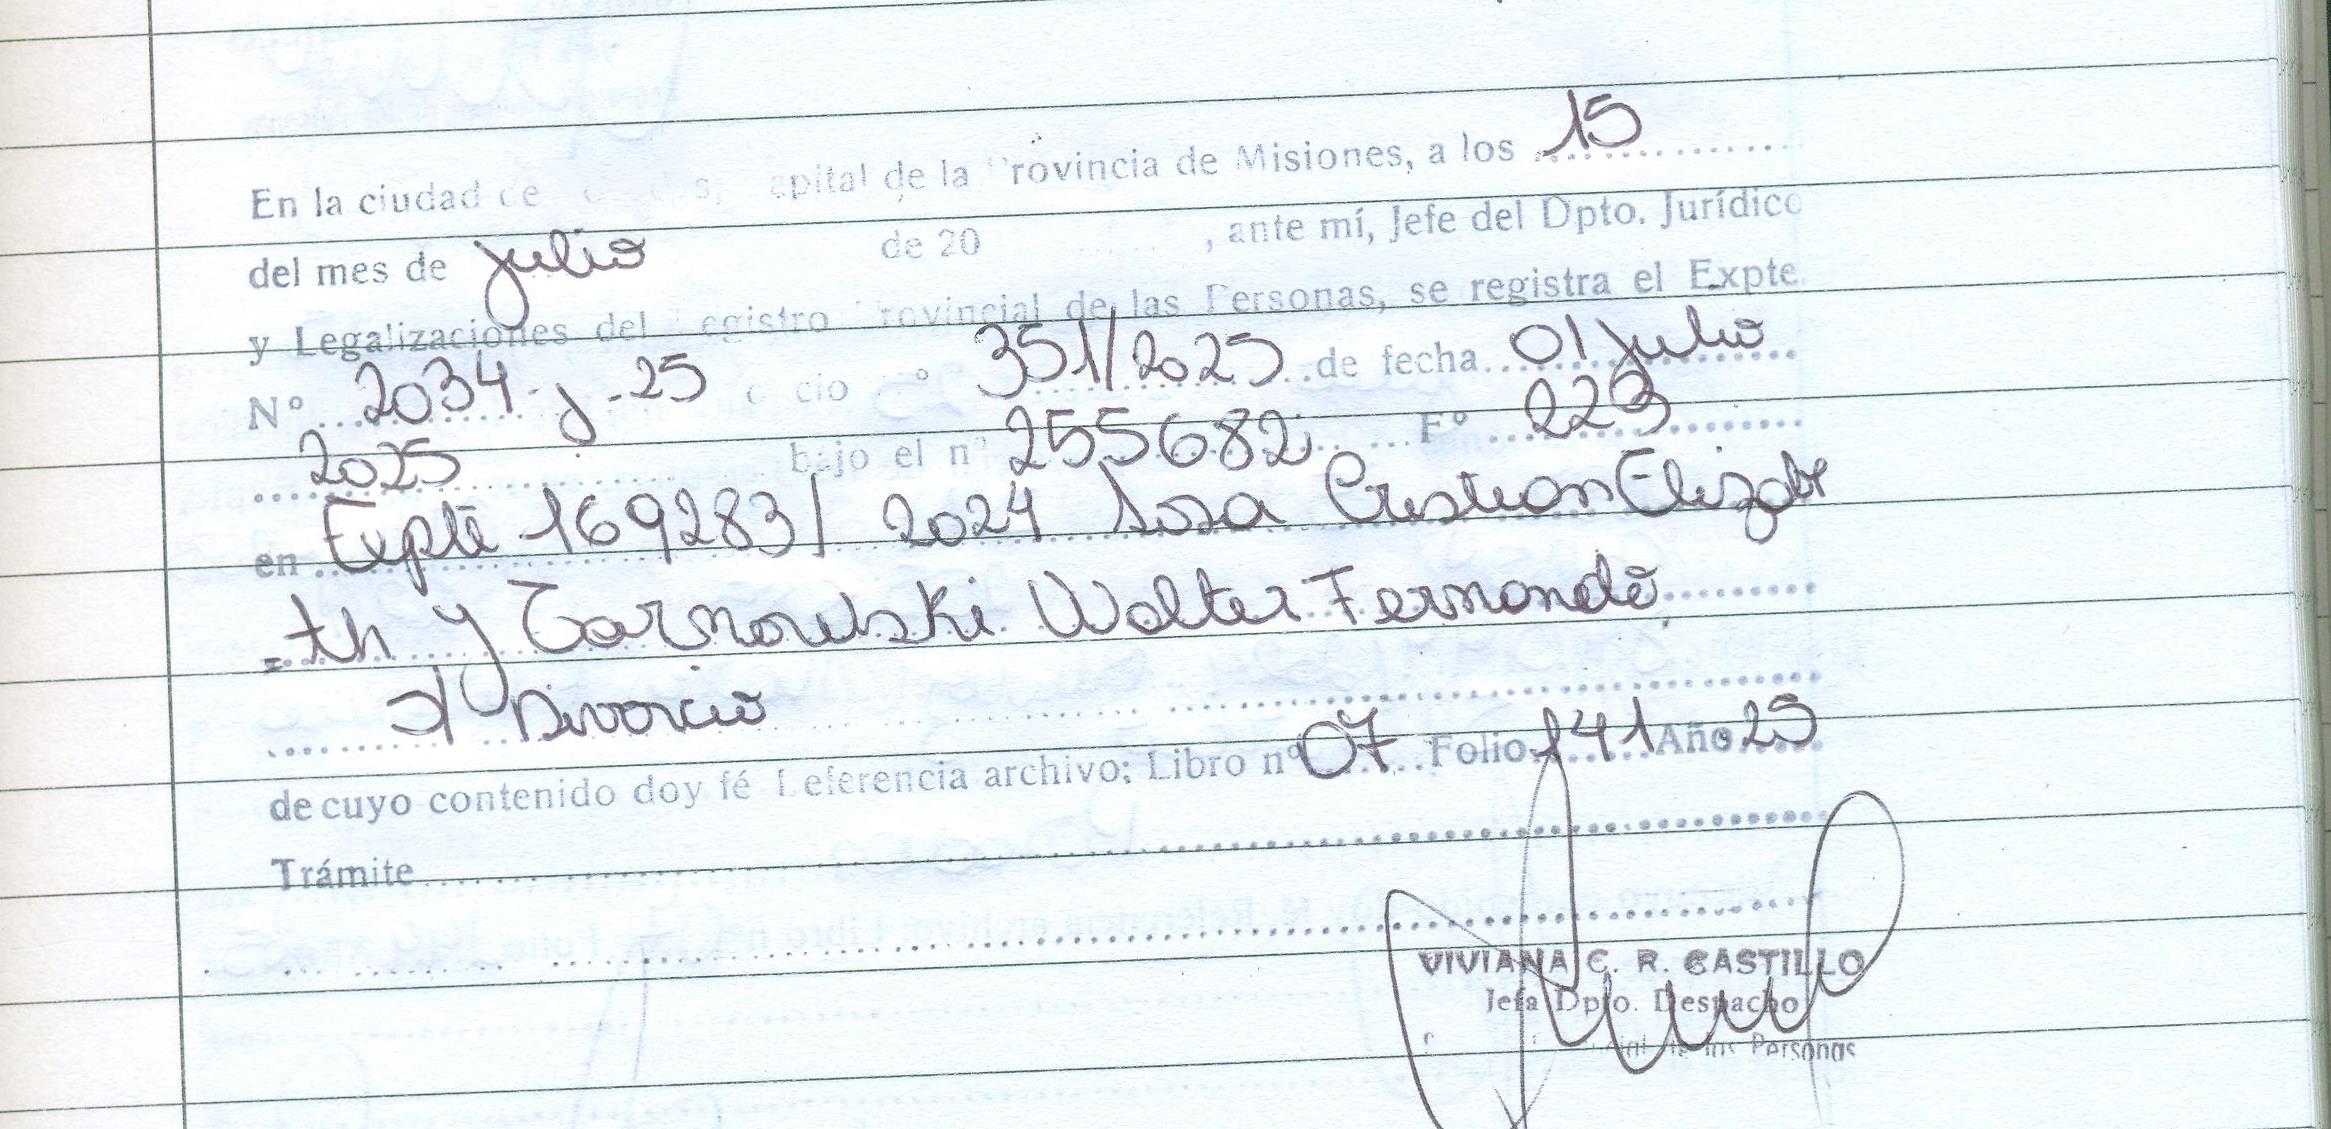 En la ciudad de capital de la Provincia de Misiones, a los 15
del mes de julio de 20 , ante mí, Jefe del Dpto. Jurídico
y Legalizaciones del Registro Provincial de las Personas, se registra el Expte
N° 2034-J-25 oficio n° 351/2025 de fecha 01 julio
2025 bajo el n° 255682 F° 223
en Expte 169283/2024 Sosa Cristian Elizabe
=th y Tarnowski Walter Fernando
s/ Divorcio
de cuyo contenido doy fé Referencia archivo; Libro n° 07 Folio 141 Año 25
Trámite
VIVIANA C. R. CASTILLO
Jefa Dpto. Despacho
de las Personas